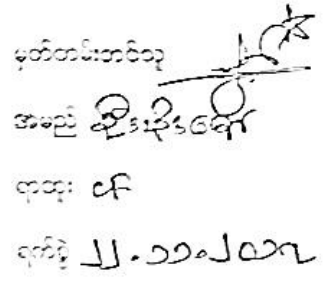 မှတ်တမ်းတင်သူ
အမည် စိုးမိုးဇော်
ရာထူး
ရက်စွဲ ၂၂.၁၁.၂၀၁၇